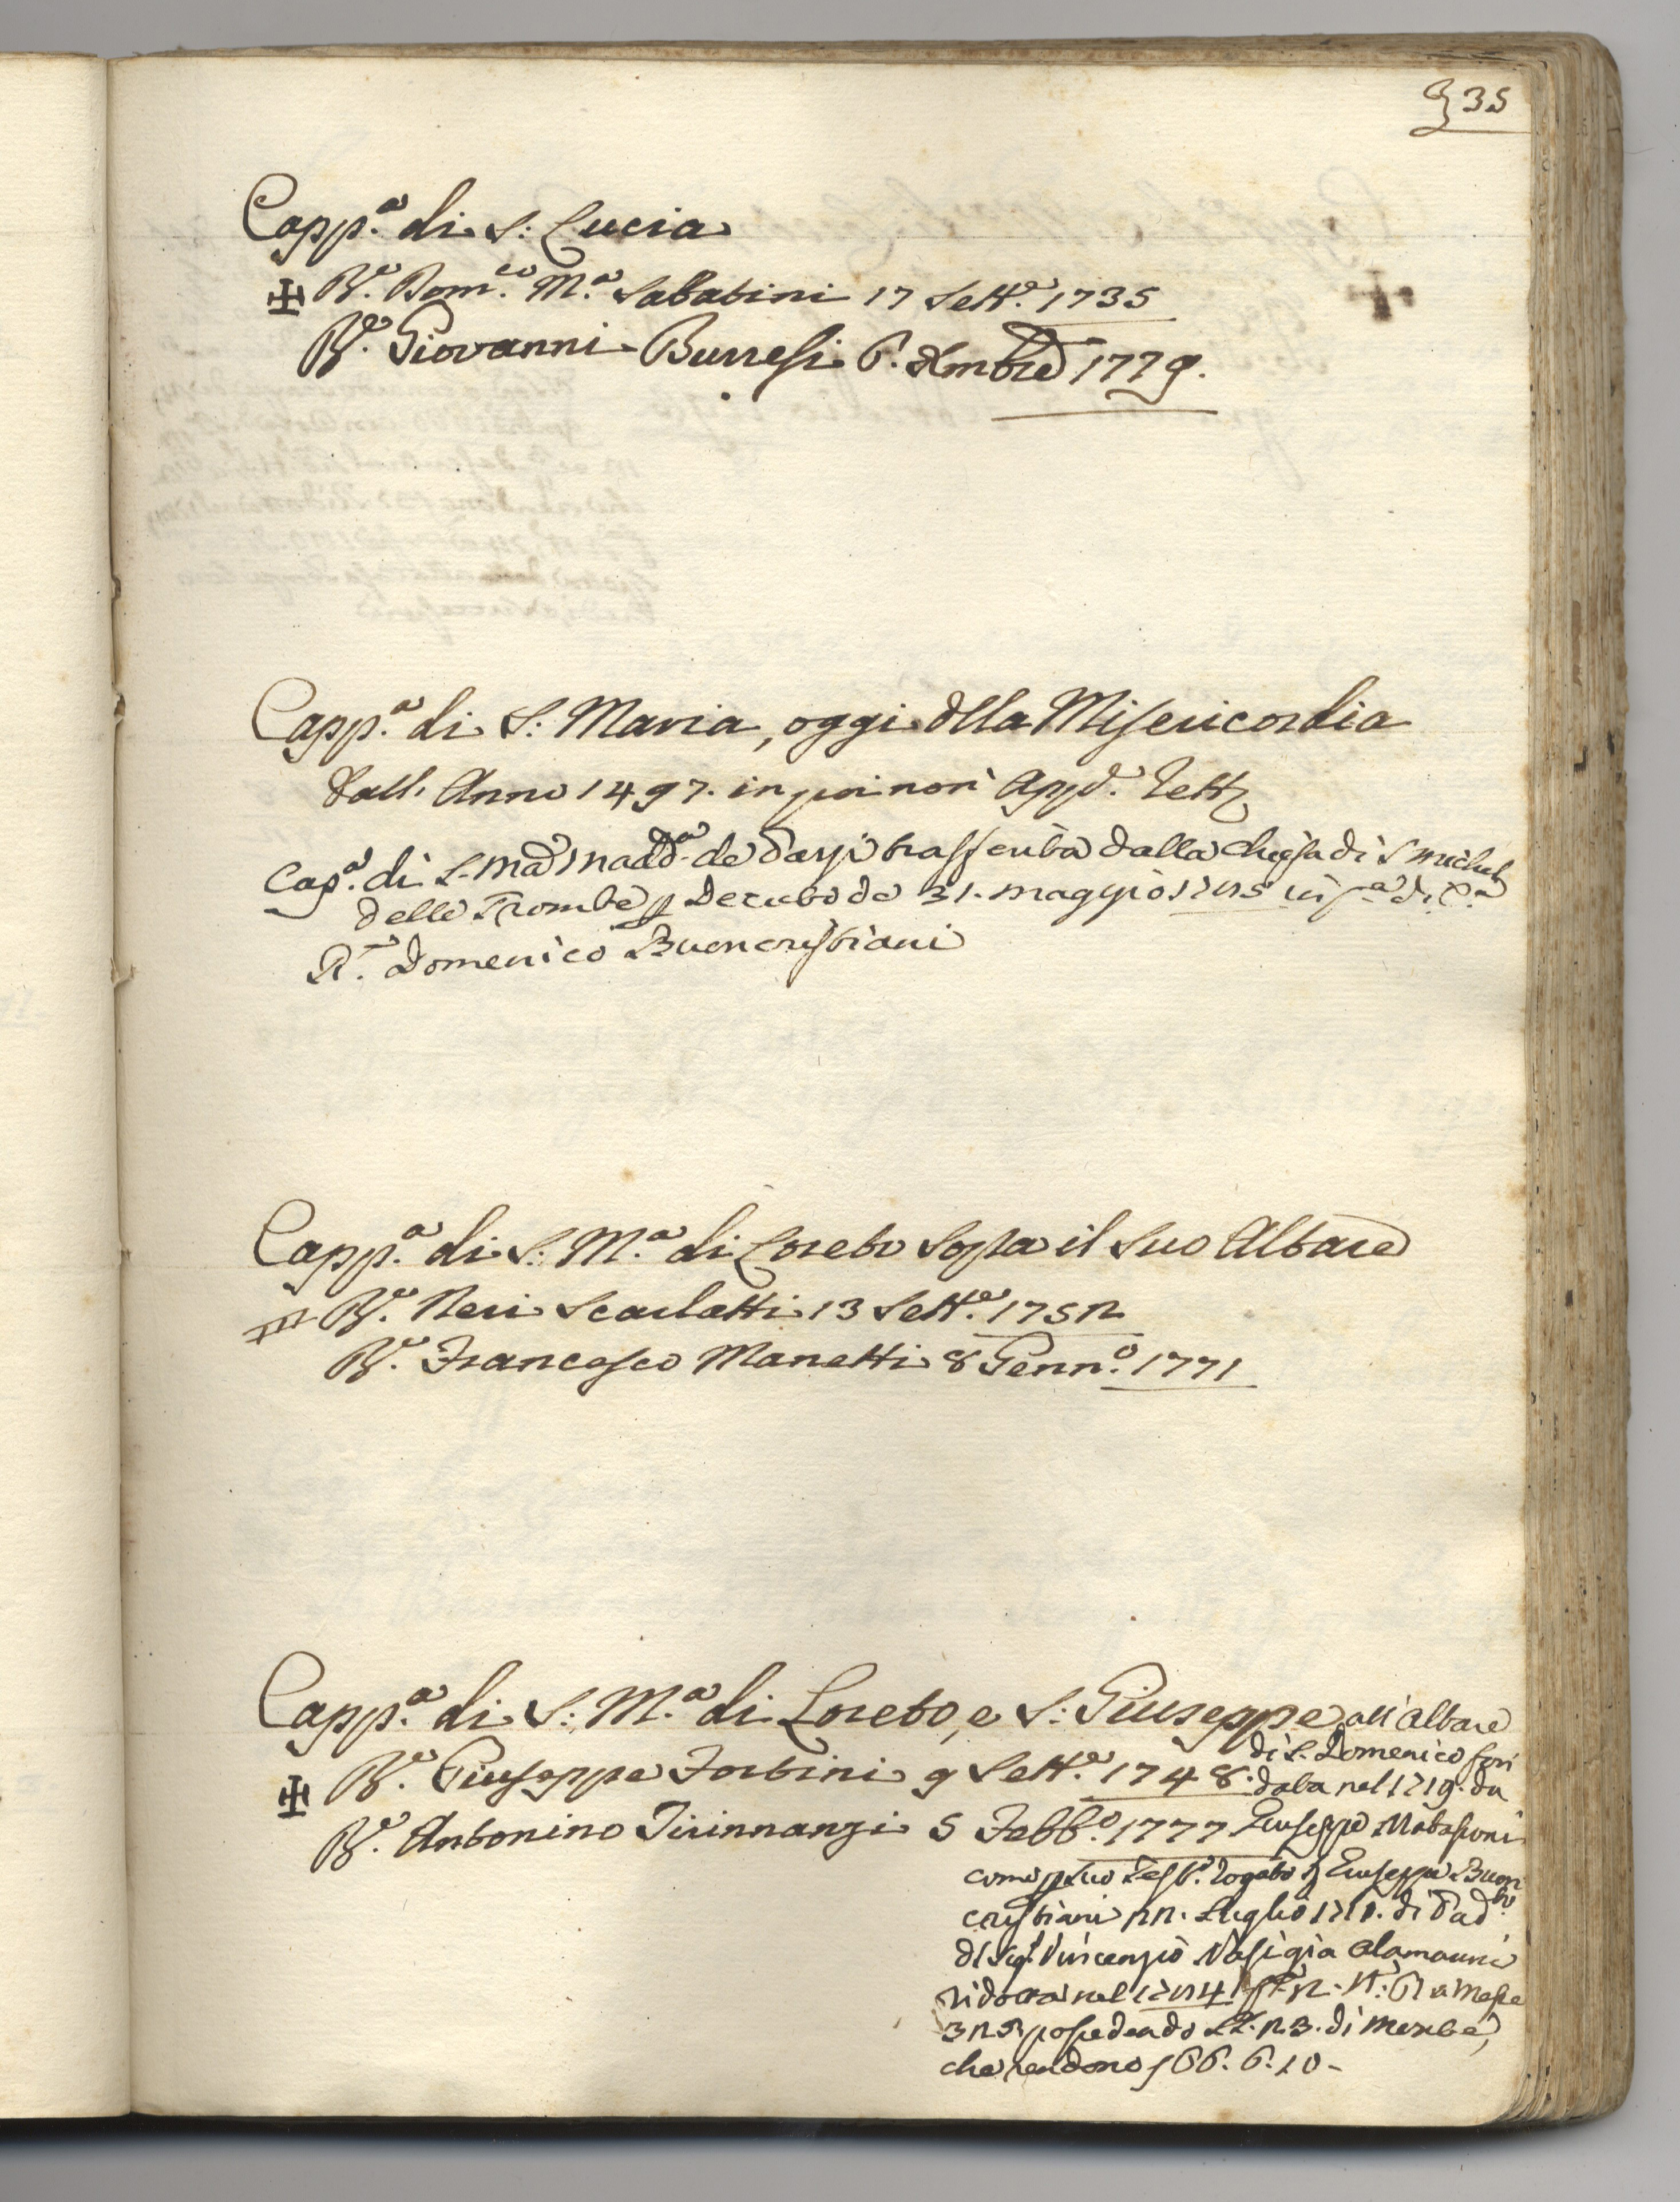 35
Capp.a di S: Lucia
✠ R.e Dom.co M.a Sabatini 17 Sett.e 1735
R.e Giovanni Burresi 6. 1779.
Capp.a di S: Maria, oggi dlla Misericordia
dall' Anno 1497. in poi non app.e
Cap.a di S. Ma Madd.a de Pazzi trasferita dalla Chiesa di S Michele
delle Trombe p Decreto de 31. maggio
R.e Domenico Buoncristiani
Capp.a di S: M.a di Loreto sopra il suo Altare
R.e Neri Scarlatti 13 Sett.e 1752
R.e Francesco Manetti 8 Genn.o 1771
Capp.a di S: M.a di Loreto, e S: Giuseppe all'altare
di S. Domenico fon
✠ R.e Giuseppe Fortini 9 Sett.e 1748. data nel 1719. da
R.e Antonino Tirinnanzi 5 Febb.o 1777 Giuseppe
come p suo Test.o rogato Giuseppe Buon
cristiani 22. Luglio di Pad.to
di Sig.r Vincenzio Alamanni
ridotta nel a Messe
possedendo di
che rendono 66. 6. 10-